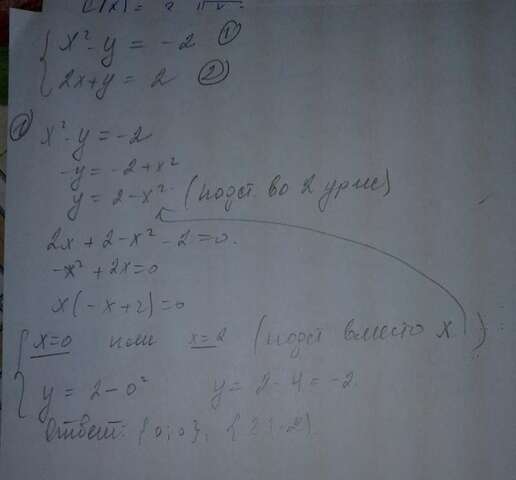 x² - y = -2 ①
2x + y = 2 ②
① x² - y = -2
-y = -2 + x²
y = 2 - x² (подст во 2 урие)
2x + 2 - x² - 2 = 0.
-x² + 2x = 0
x(-x + 2) = 0
x = 0 или x = 2 (подст вместо x)
y = 2 - 0² y = 2 - 4 = -2.
Ответ: {0; 0}, {2; -2}